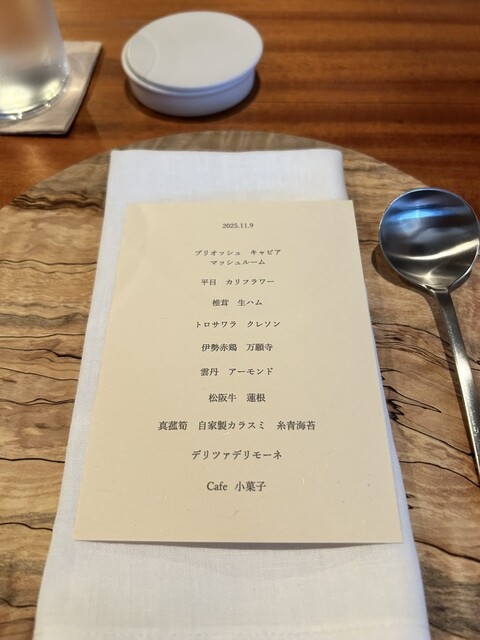 2025.11.9
ブリオッシュ　キャビア
マッシュルーム
平目　カリフラワー
椎茸　生ハム
トロサワラ　クレソン
伊勢赤鶏　万願寺
雲丹　アーモンド
松阪牛　蓮根
真菰筍　自家製カラスミ　糸青海苔
デリツァデリモーネ
Cafe　小菓子